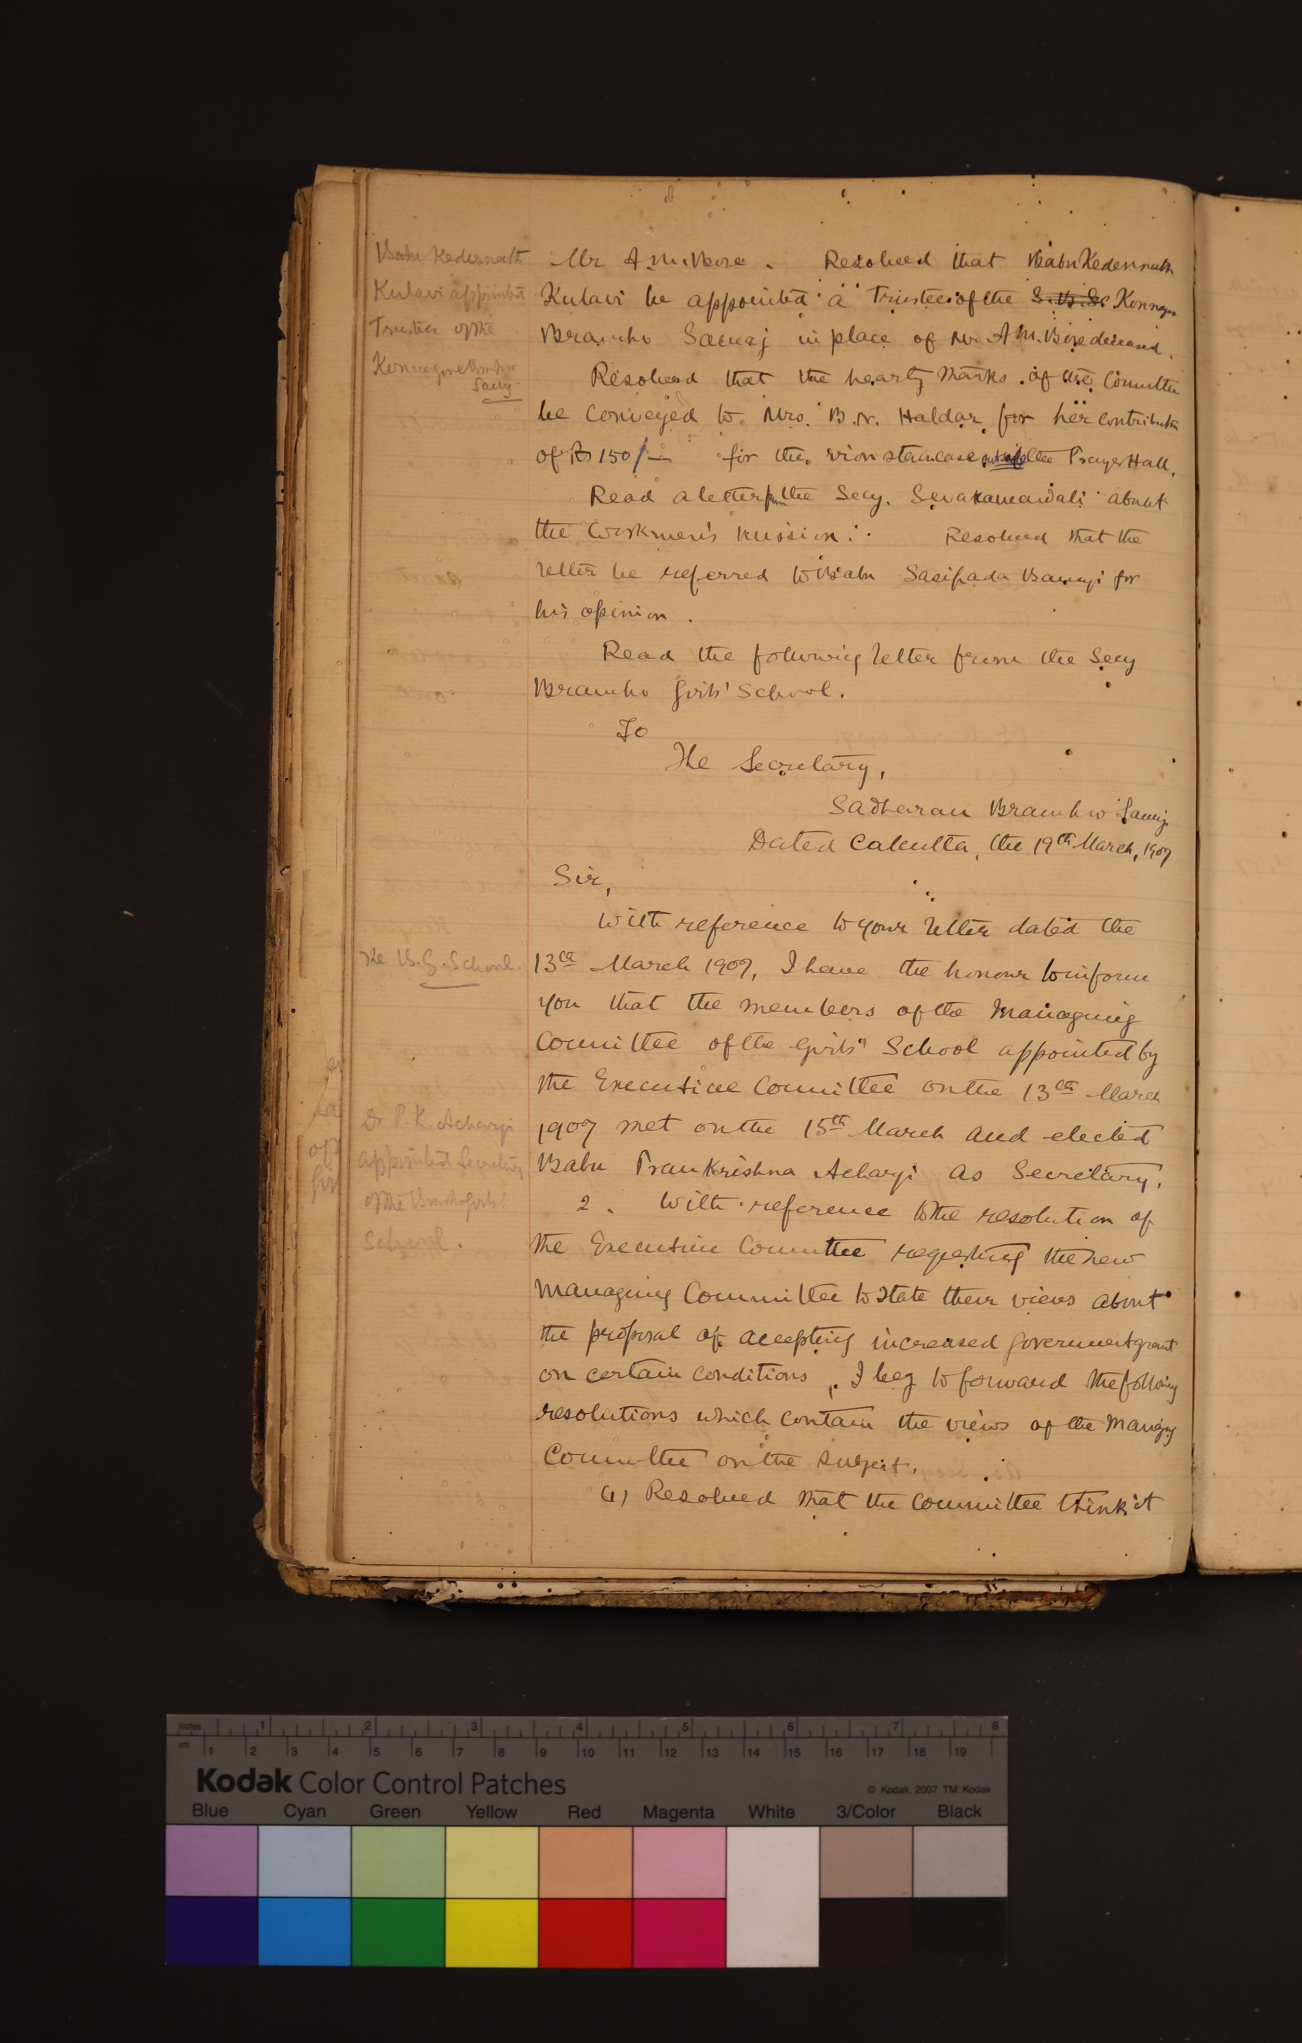 Babu Kedernath
Kulavi appointed
Trustee of the
Konnagore Bramho
Samj.
Mr A. M. Bose. Resolved that Babu Kedernath
Kulavi be appointed a Trustee of the S. B. S. Konnagar
Bramho Samaj in place of Mr A M. Bose deceased.
Resolved that the hearty thanks of the Committee
be conveyed to Mrs. B. N. Haldar for her contribution
of Rs 150/- for the iron staircase the Prayer Hall.
Read a letter from the Secy. Sevakamandali about
the Workmen's Mission. Resolved that the
letter be referred to Babu Sasipada Banerji for
his opinion.
Read the following letter from the Secy
Bramho Girls' School.
To
The Secretary,
Sadharan Bramho Samj.
Dated Calcutta, the 19th March, 1907
Sir,
With reference to your letter dated the
The B. G. School.
13th March 1907, I have the honour to inform
you that the members of the Managing
Committee of the Girls' School appointed by
the Executive Committee on the 13th March
1907 met on the 15th March and elected
Babu Prankrishna Acharji as Secretary.
Dr P. K. Acharji
appointed Secretary
of the Bramho Girls'
School.
2. With reference to the resolution of
the Executive Committee requesting the new
Managing Committee to state their views about
the proposal of accepting increased government grant
on certain conditions, I beg to forward the following
resolutions which contain the views of the Managing
Committee on the subject.
(1) Resolved that the Committee think it
inches 1 2 3 4 5 6 7 8
cm 1 2 3 4 5 6 7 8 9 10 11 12 13 14 15 16 17 18 19
Kodak Color Control Patches
© Kodak, 2007 TM: Kodak
Blue Cyan Green Yellow Red Magenta White 3/Color Black